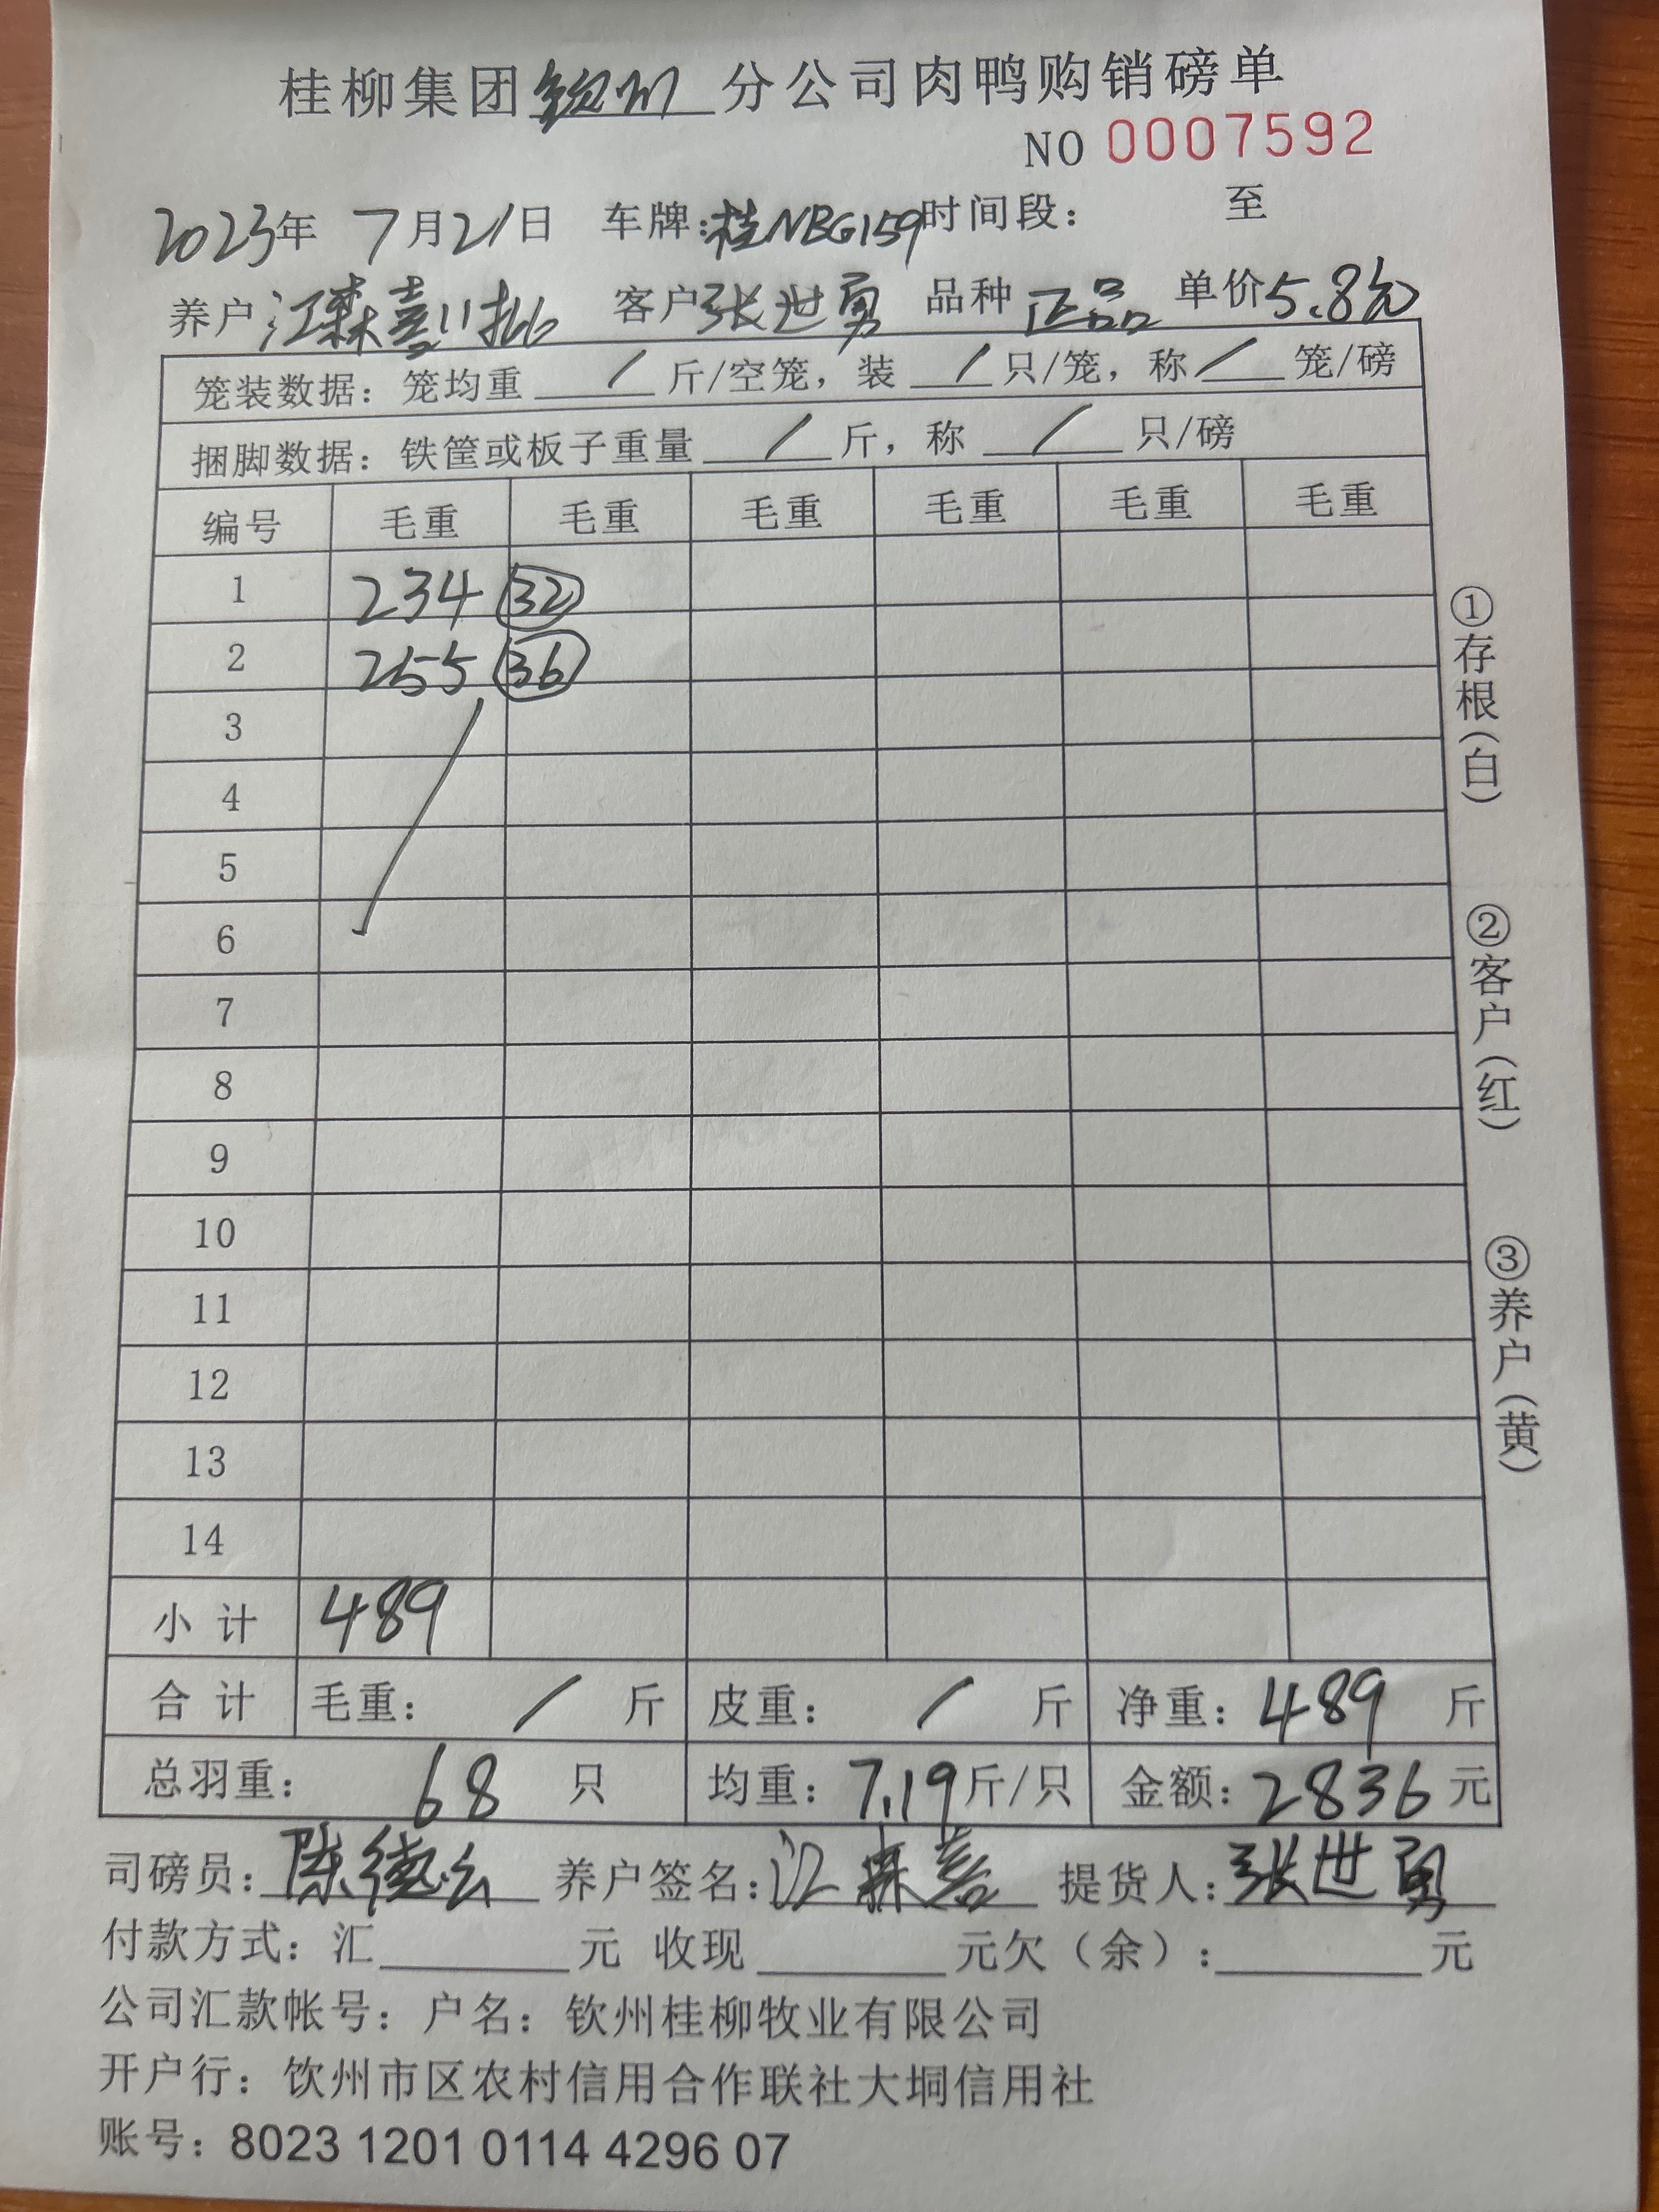 桂柳集团钦州分公司肉鸭购销磅单
NO 0007592
2023年 7月21日 车牌:桂NBG159时间段: 至
养户 江森喜11批 客户 张世勇 品种 正品 单价5.8元
笼装数据: 笼均重 / 斤/空笼, 装 / 只/笼, 称 / 笼/磅
捆脚数据: 铁筐或板子重量 / 斤, 称 / 只/磅
编号 毛重 毛重 毛重 毛重 毛重 毛重
1 234 32
2 255 36
3
4
5
6
7
8
9
10
11
12
13
14
小计 489
合计 毛重: / 斤 皮重: / 斤 净重: 489 斤
总羽重: 68 只 均重: 7.19斤/只 金额: 2836元
司磅员: 陈德 养户签名: 江森喜 提货人: 张世勇
付款方式: 汇 元 收现 元欠(余): 元
公司汇款帐号: 户名: 钦州桂柳牧业有限公司
开户行: 饮州市区农村信用合作联社大垌信用社
账号: 8023 1201 0114 4296 07
①存根(白)
②客户(红)
③养户(黄)